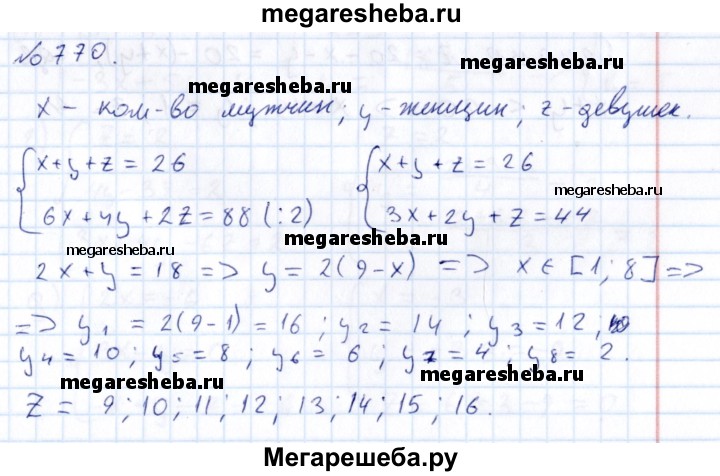 megaresheba.ru
№770.
megaresheba.ru
x - кол-во мужчин; y - женщин; z - девушек.
{x+y+z = 26 {x+y+z = 26
megaresheba.ru
6x+4y+2z=88 (:2) 3x+2y+z=44
megaresheba.ru
megaresheba.ru
2x+y=18 => y=2(9-x) => x∈[1;8]=>
=> y1 = 2(9-1)=16; y2= 14; y3=12;
y4=10; y5=8; y6= 6; y7=4; y8= 2.
megaresheba.ru
megaresheba.ru
Z = 9; 10; 11; 12; 13; 14; 15; 16.
Мегарешеба.ру